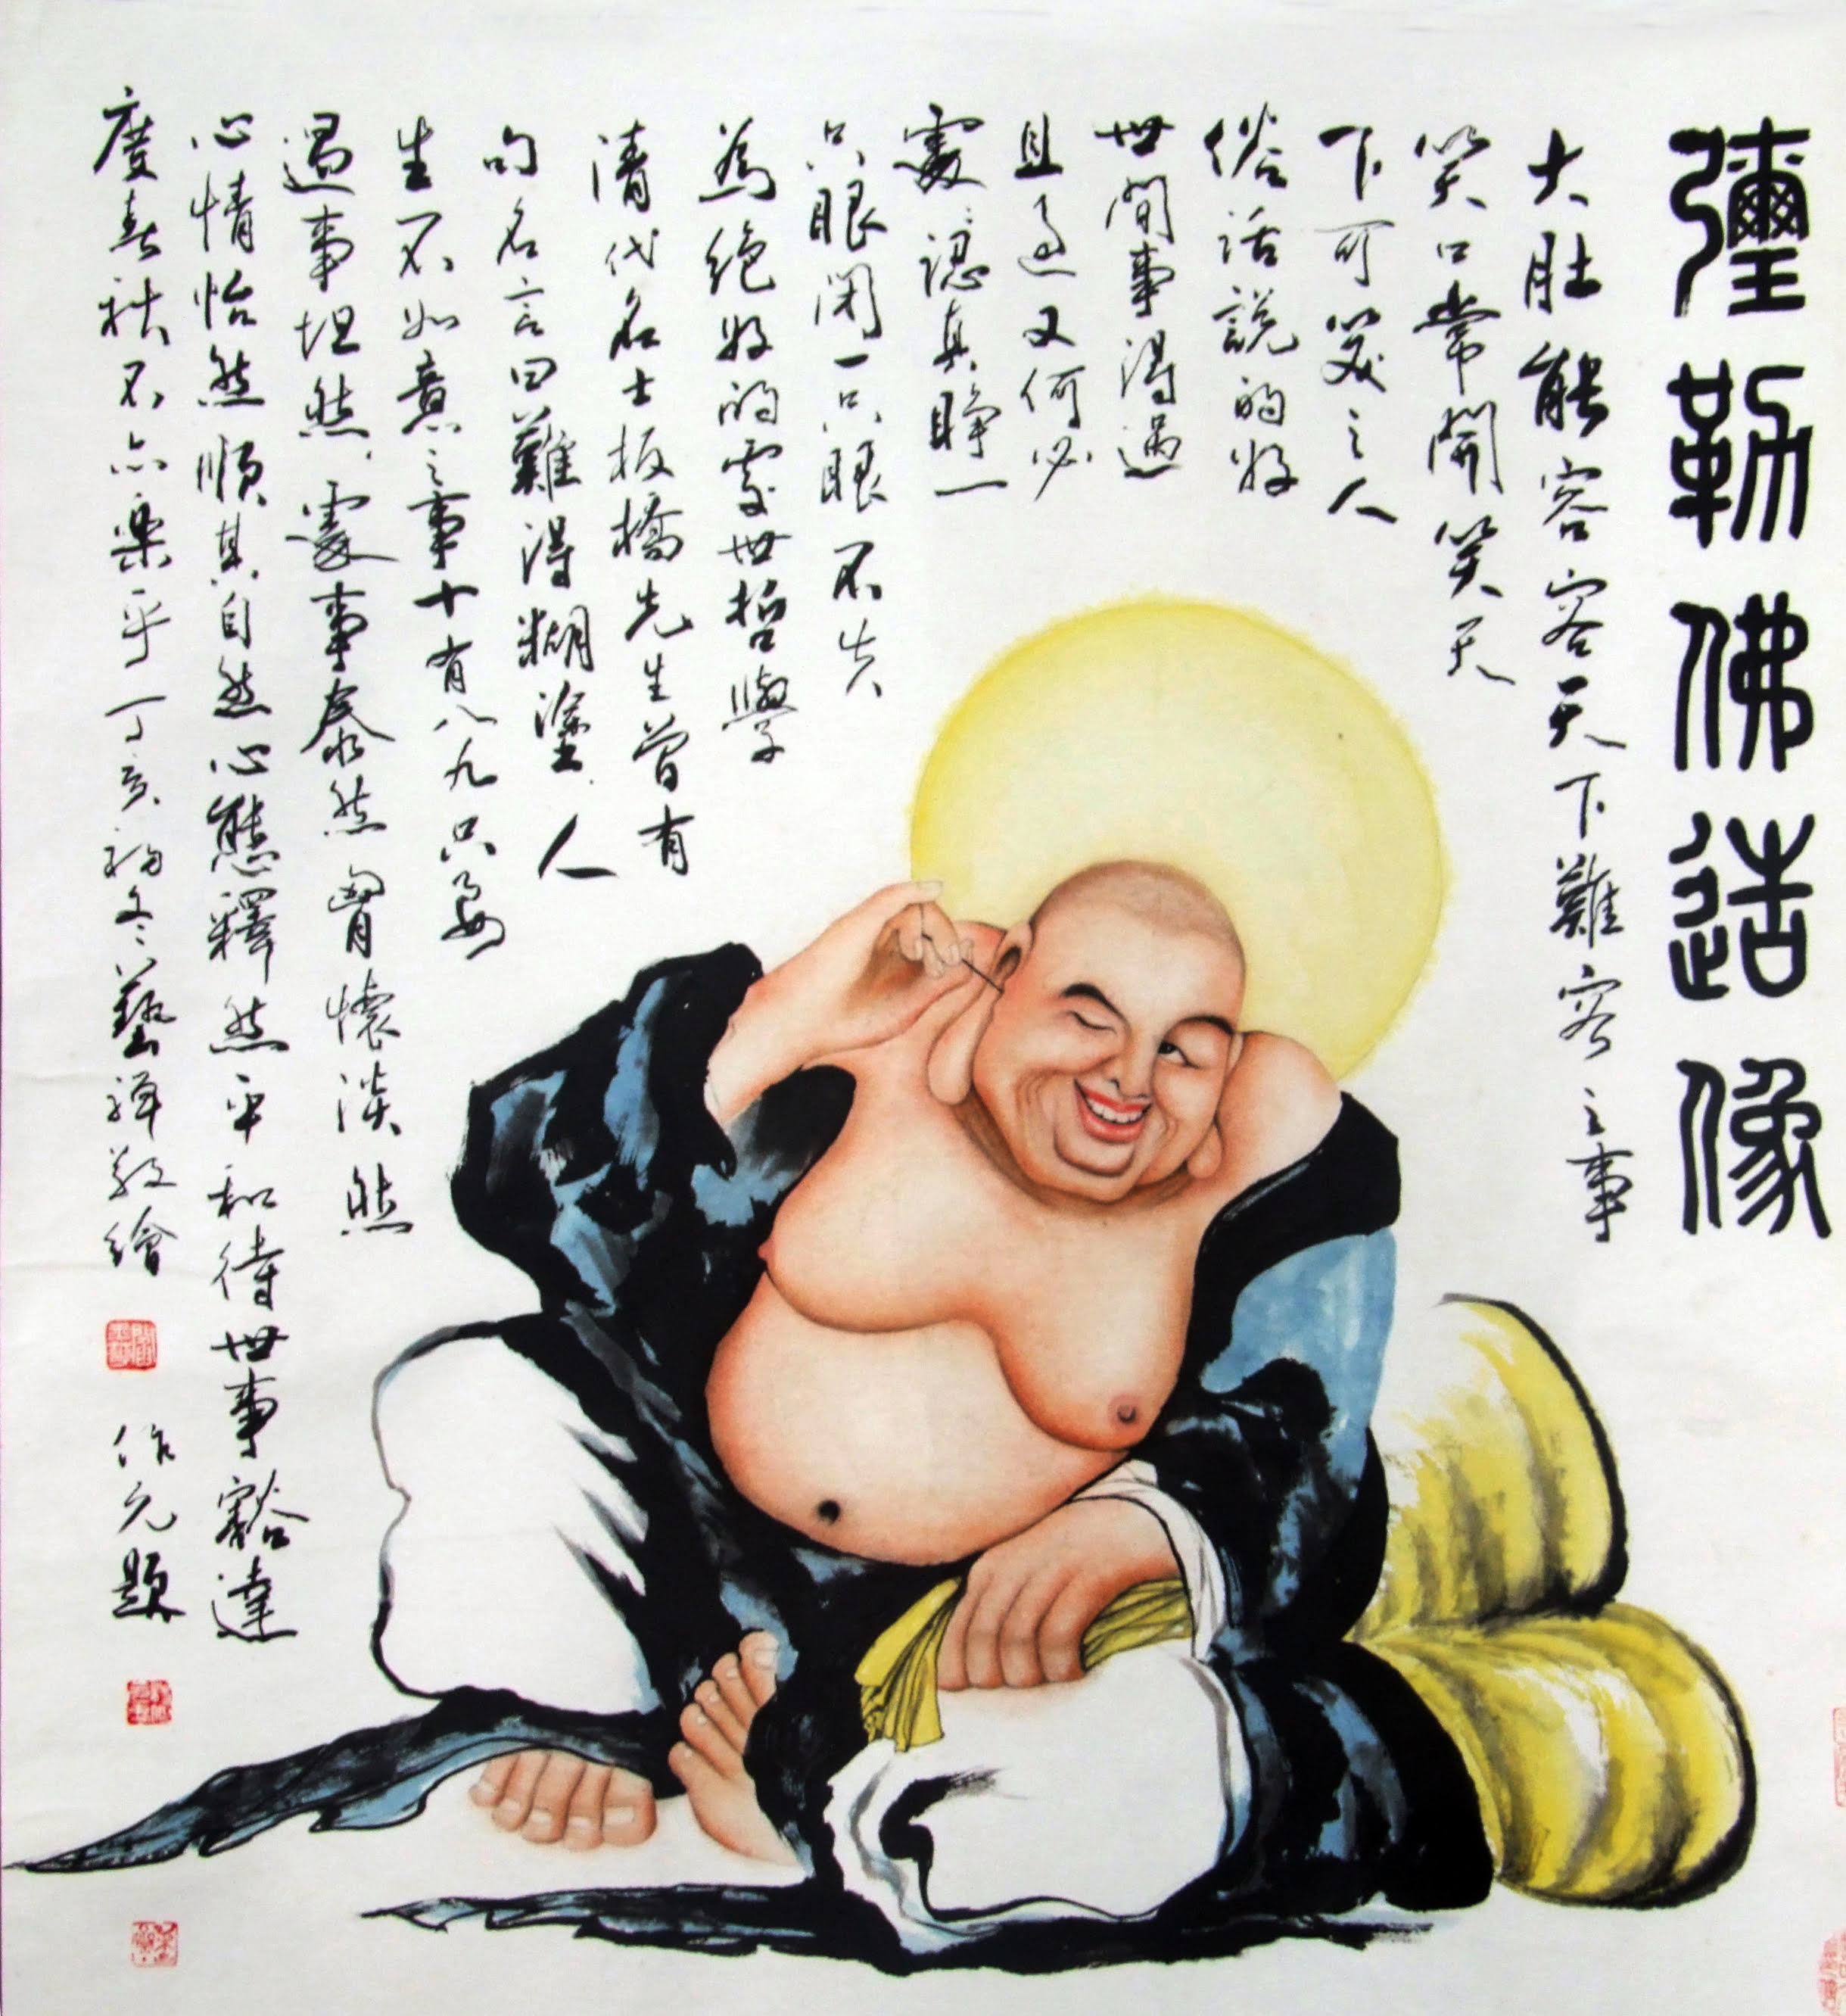 彌勒佛造像
大肚能容容天下難容之事
笑口常開笑天
下可笑之人
俗話説的好
世間事得過
且過又何必
處處認真睜一
只眼閉一只眼不失
為絕好的處世哲學
清代名士板橋先生曾有
句名言曰難得糊塗人
生不如意之事十有八九只要
遇事坦然處事泰然胷懷淡然
心情怡然順其自然心態釋然平和待世事豁達
度春秋不亦樂乎丁亥初冬藝禪敬繪
作元題